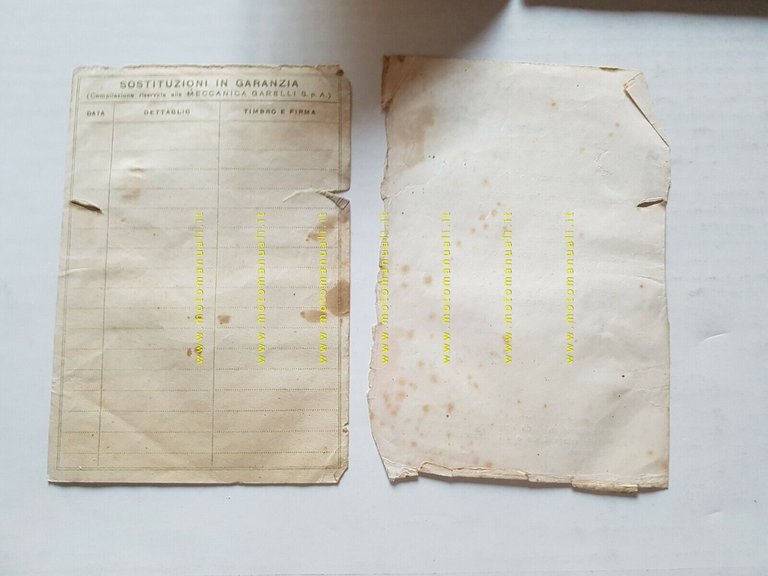 SOSTITUZIONI IN GARANZIA
(Compilazione riservata alla MECCANICA GARELLI S.p.A.)
DATA DETTAGLIO TIMBRO E FIRMA
www.motomanuali.it
www.motomanuali.it
www.motomanuali.it
www.motomanuali.it
www.motomanuali.it
www.motomanuali.it
www.motomanuali.it